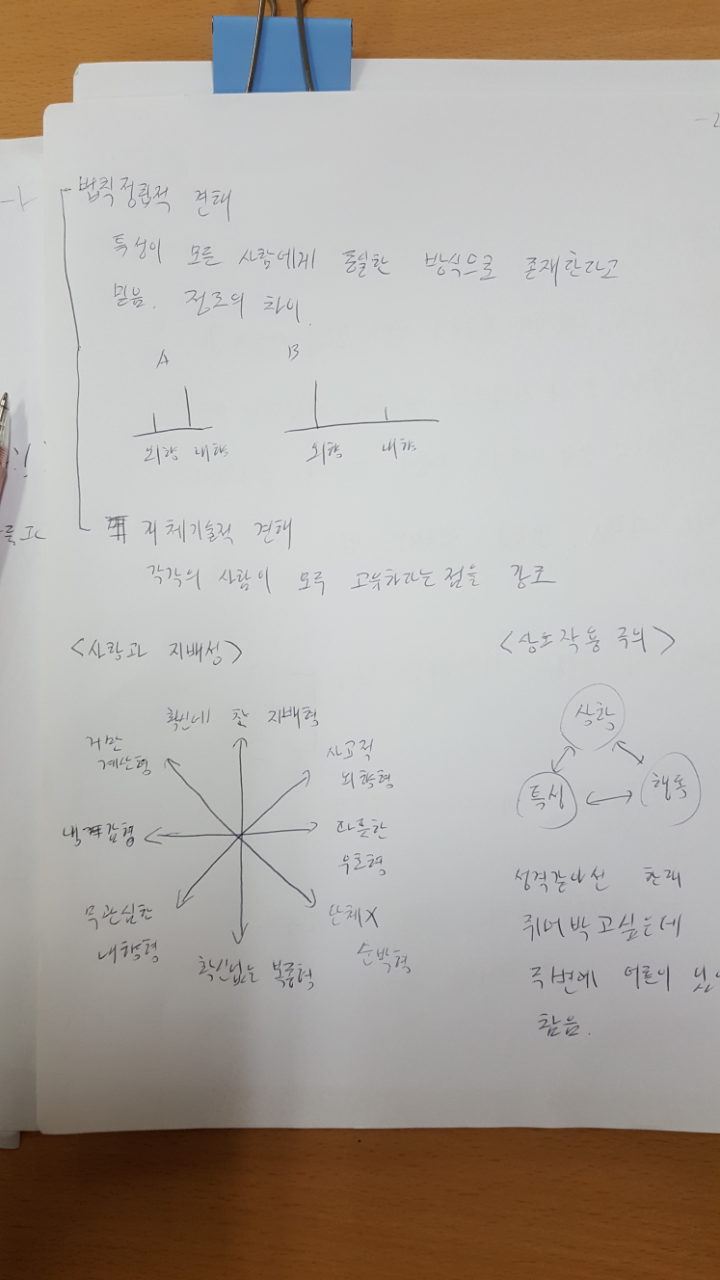 법칙정립적 견해
특성이 모든 사람에게 동일한 방식으로 존재한다고
믿음. 정도의 차이.
A
B
외향 내향
외향 내향
개체기술적 견해
각각의 사람이 모두 고유하다는 점을 강조
<사랑과 지배성>
확신에 찬 지배형
거만
계산형
사교적
외향형
냉감형
따뜻한
우호형
무관심한
내향형
확신없는 복종형
단체X
순박형
<상호작용주의>
상황
특성
행동
성격같아선 한대
쥐어박고싶은데
주변에 어른이
참음.